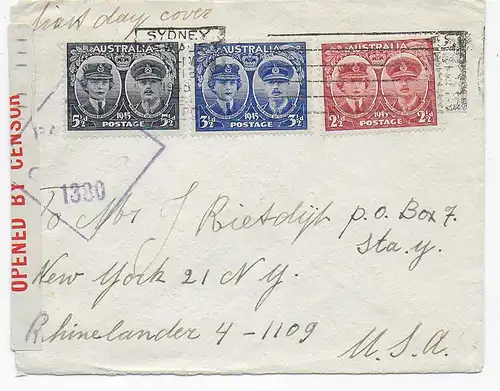 first day cover
SYDNEY
AUSTRALIA
1945
5½d 5½d
POSTAGE
AUSTRALIA
1945
3½d 3½d
POSTAGE
AUSTRALIA
1945
2½d 2½d
POSTAGE
OPENED BY CENSOR
1380
To Mr J Rietdijk P.O. Box 7.
Sta. y.
New York 21 N.Y.
Rhinelander 4-1109
U.S.A.